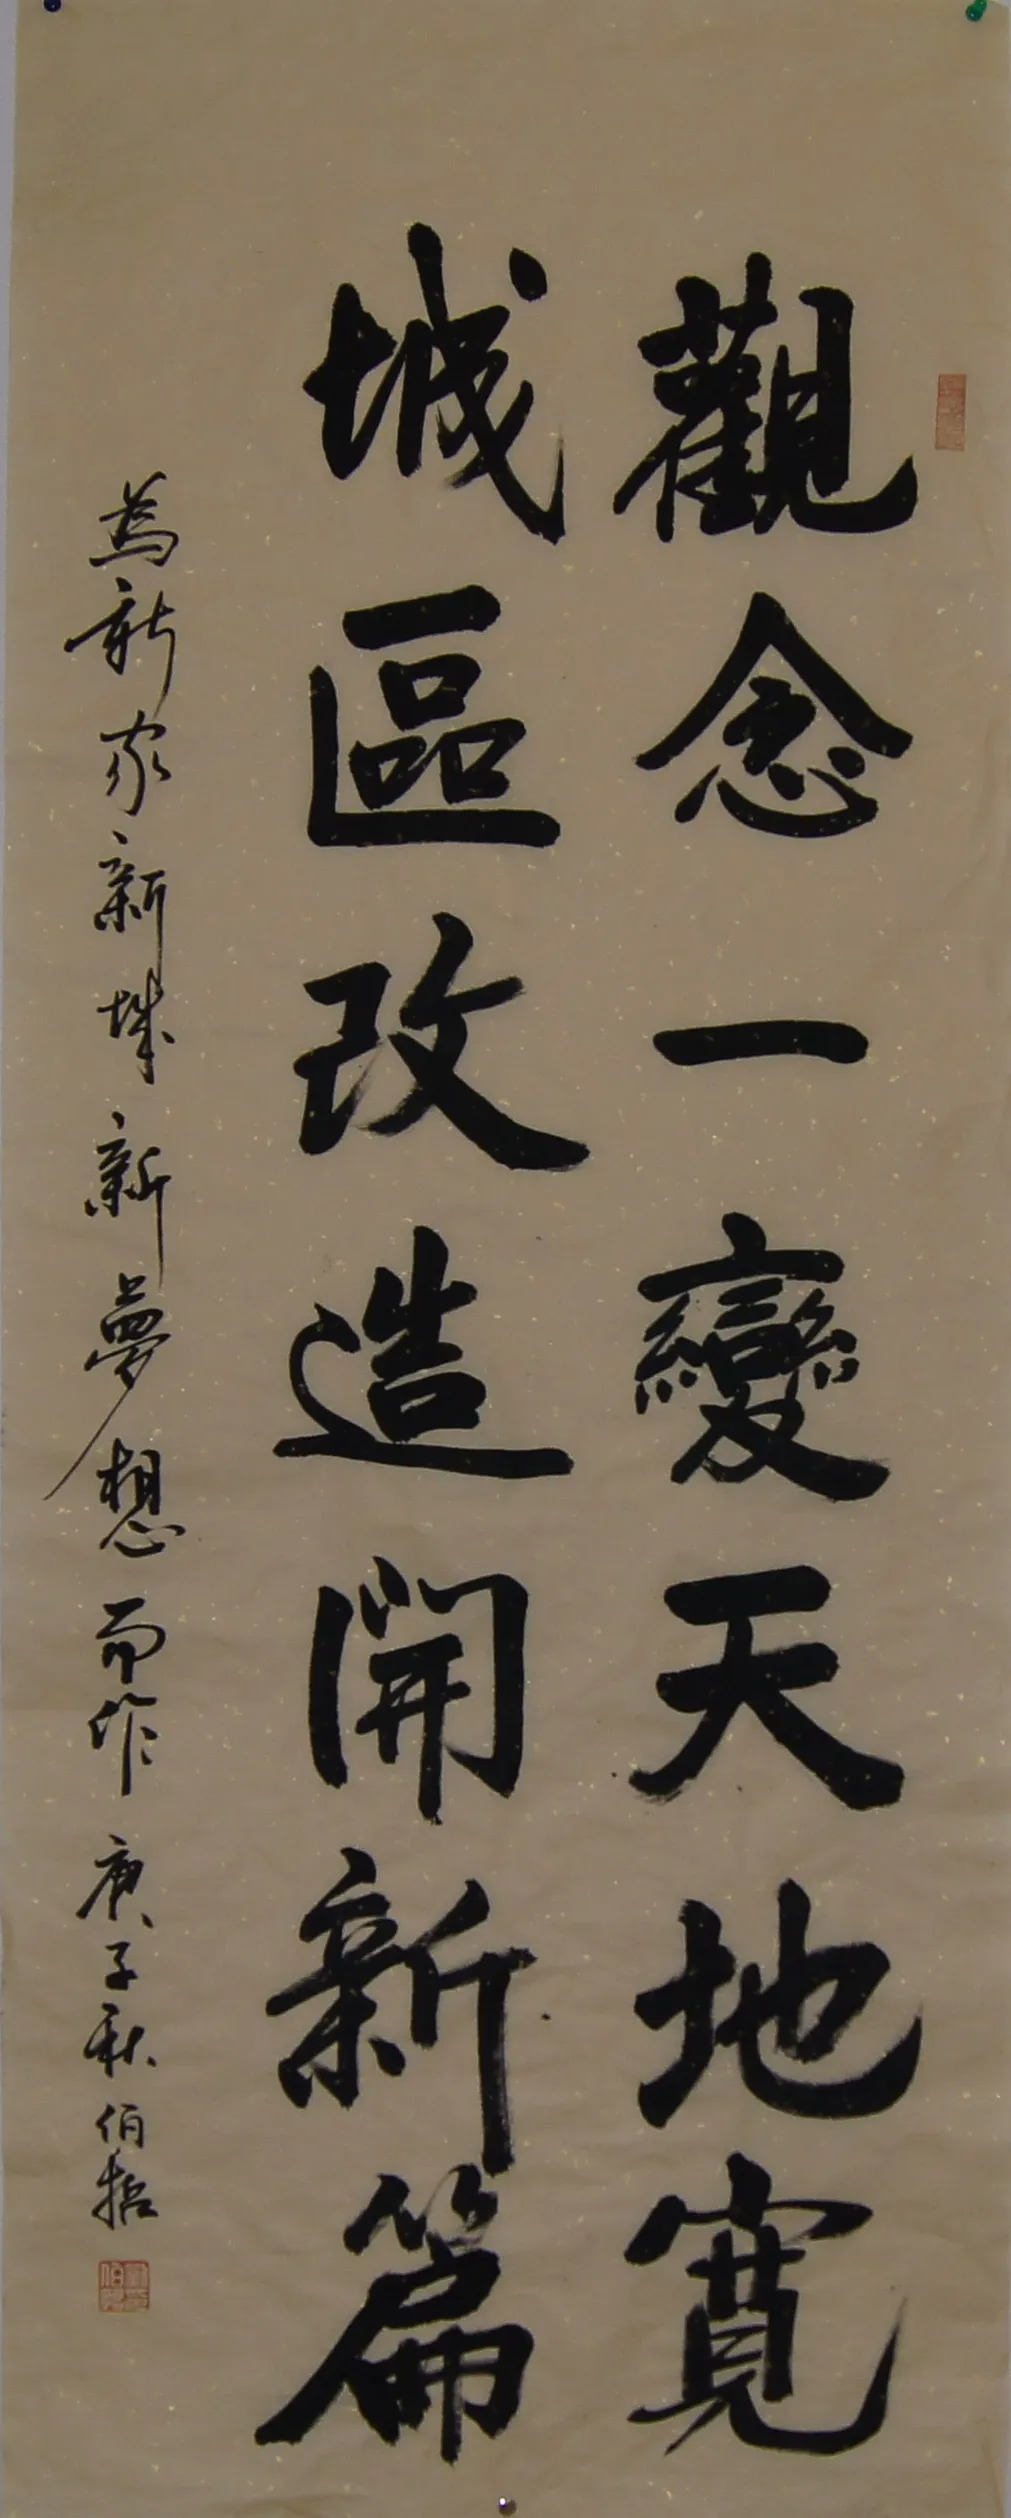 觀念一變天地寬
城區改造開新篇
為新家新城新夢想而作 庚子秋 伯哲